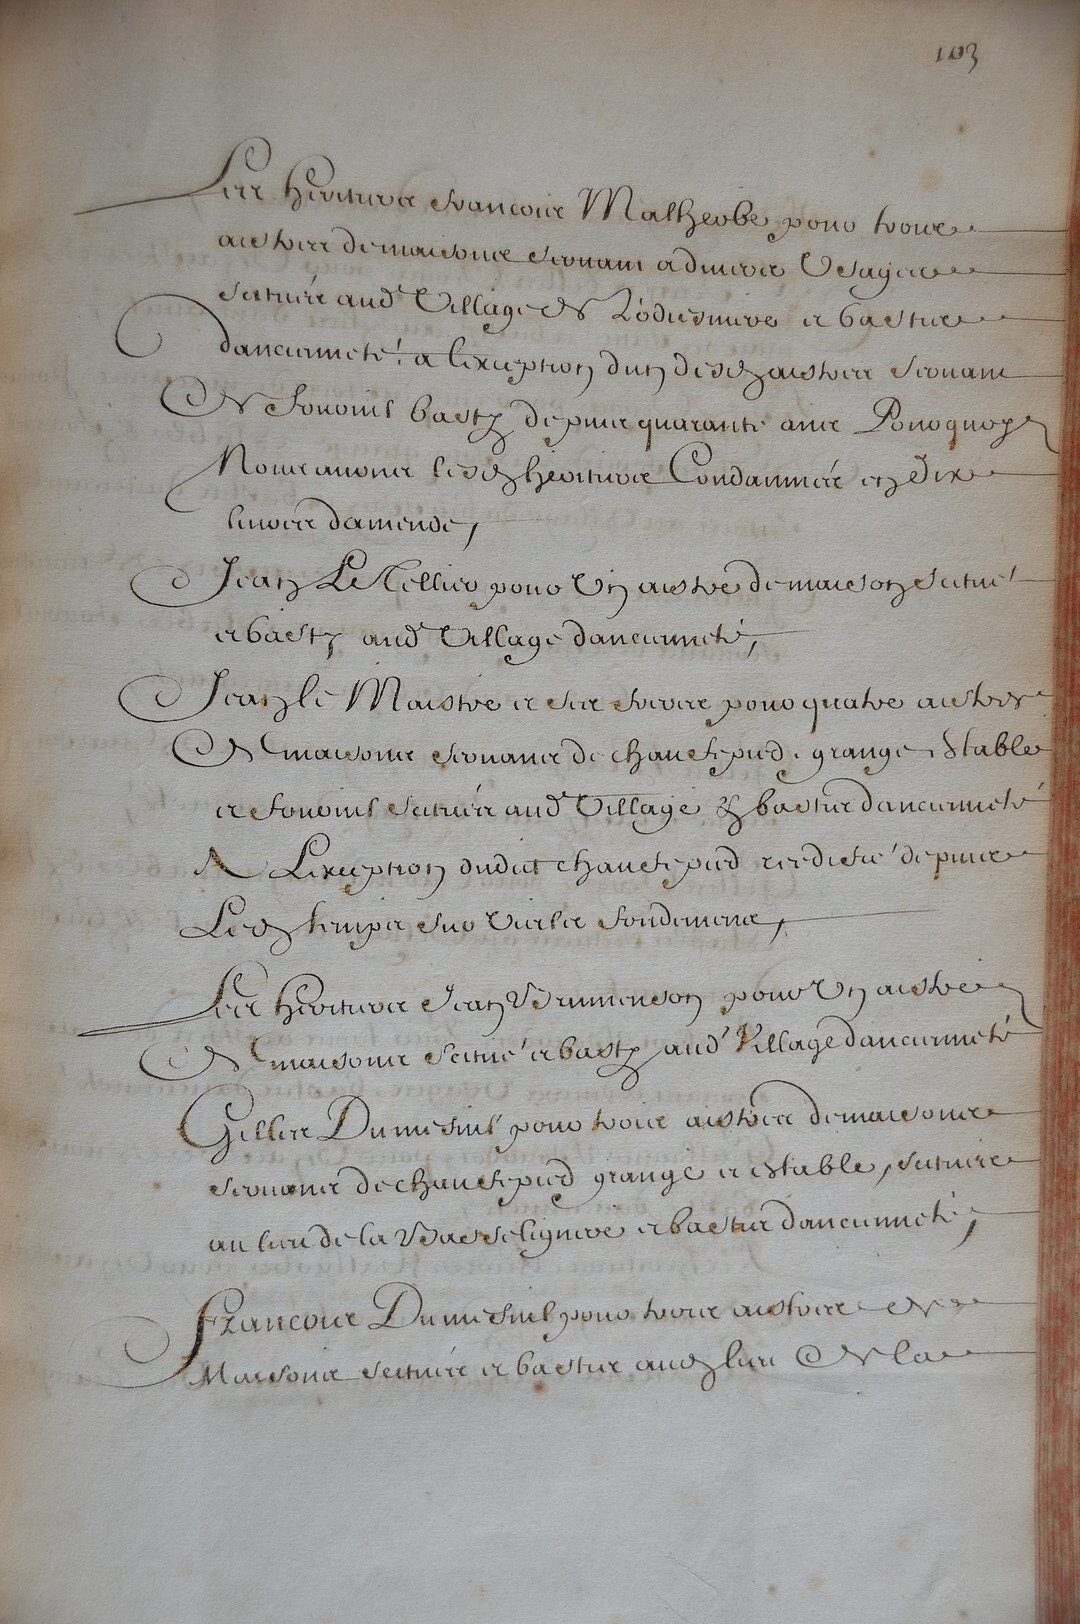 103
Les heritiers francois Malherbe pour trois
aistres de maisons servant a divers Usages
scitués aud.t Village de et bastis
d'ancienneté, a l'exception d'un desd. aistres servant
de fournil basty depuis quarante ans Pourquoy
Nous avons lesd. heritiers Condamnés en dix
livres d'amende,
Jean Le Tellier pour Un aistre de maison scitué
et basty aud.t Village d'ancienneté,
Jean le Maistre et ses freres pour quatre aistres
de maisons servants de chaufepied, grange, estable
et fournil scitués aud.t Village & bastis d'ancienneté
A L'exception dudit chaufepied reedifié depuis
Led. temps sur vieils fondements,
Les heritiers Jean Brumenson pour Un aistre
de maisons scitué et basty aud.t Village d'ancienneté
Gilles Dumesnil pour trois aistres de maisons
servants de chaufepied grange et estable, scitués
au lieu de la Basseligniere et bastis d'ancienneté,
francois Dumesnil pour trois aistres de
Maisons scitués et bastis aud. lieu de la